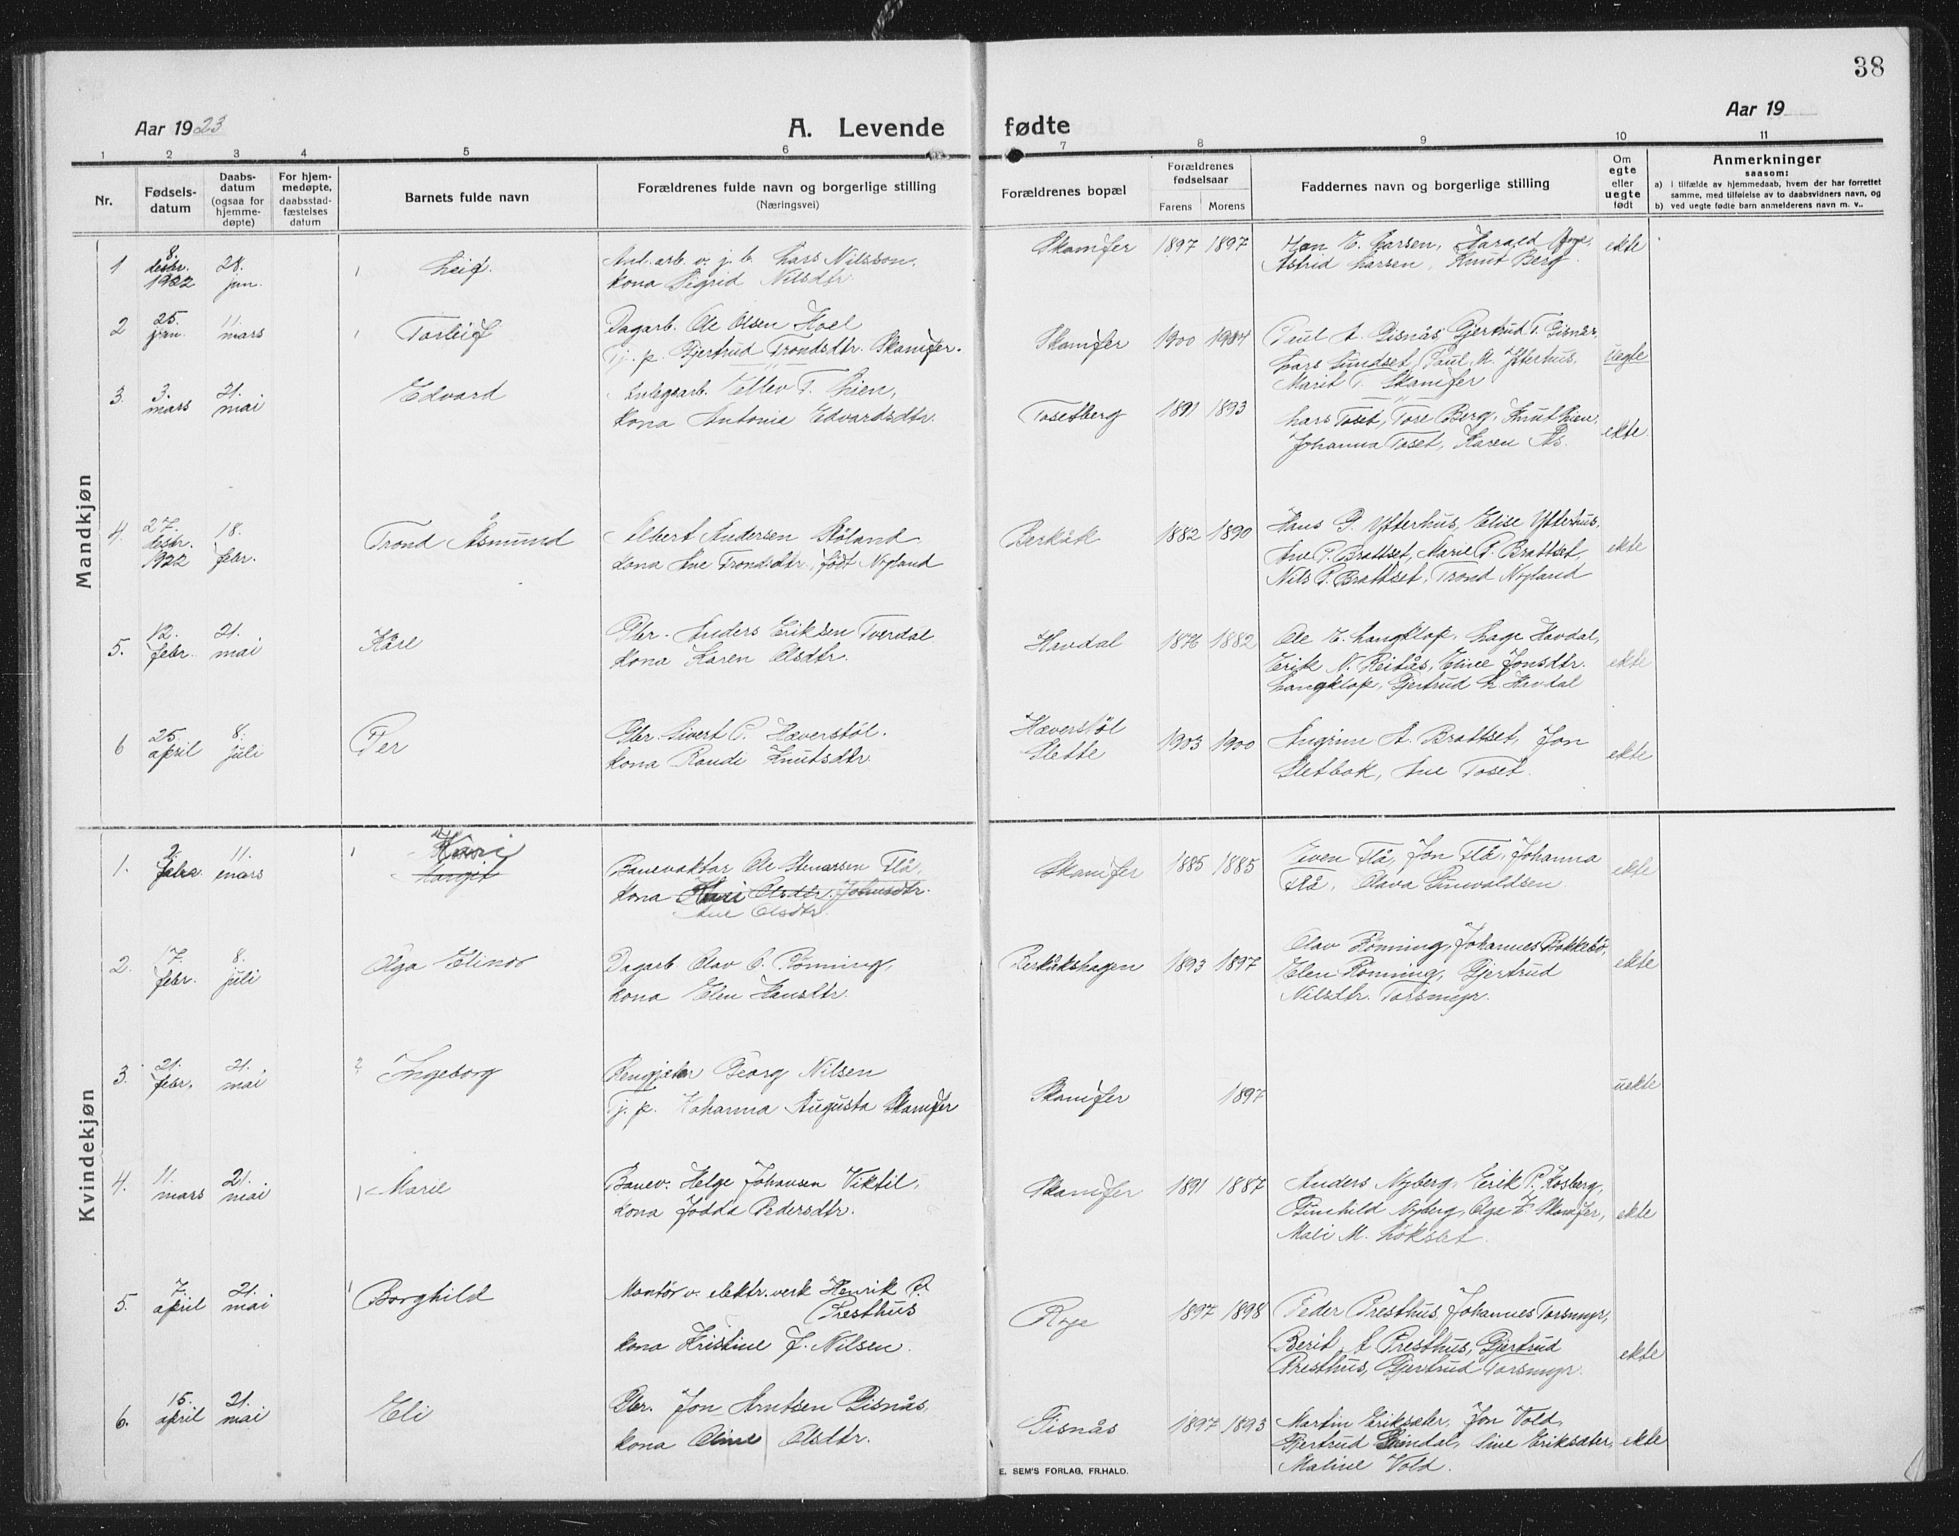 38
Aar 1923
A. Levende fødte
Aar 19
1 2 3 4 5 6 7 8 9 10 11
Nr.
Fødsels-
datum
Daabs-
datum
(ogsaa for
hjemme-
døpte)
For hjem-
medøpte,
daabsstad-
fæstelses
datum
Barnets fulde navn
Forældrenes fulde navn og borgerlige stilling
(Næringsvei)
Forældrenes bopæl
Forældrenes
fødselsaar
Farens Morens
Faddernes navn og borgerlige stilling
Om
egte
eller
uegte
født
Anmerkninger
saasom:
a) i tilfælde av hjemmedaab, hvem der har forrettet
samme, med tilføielse av to daabsvidners navn, og
b) ved uegte fødte barn anmelderens navn m. v..
Mandkjøn
1 8. desbr. 1922 28. jan. Leif.
Anl. arb. v. j. b. Lars Nilsson.
kona Sigrid Nilsdtr.
Skamfer 1897 1897
E. Larsen, Harald
Astrid Larsen, Knut Berg.
ekte
2 25. jan. 11. mars Torleif
Dagarb. Ole Olsen Hoel
Tj. p. Gjertrud Trondsdtr. Skamfer.
Skamfer 1900 1904
Paul A. Gisnås, Gjertrud T. Gisnås,
Lars Sundset, Paul A. Ytterhus,
Marit T. Skamfer
uegte
3. 3. mars 21. mai Edvard
Anlegsarb. Ellev T. Lien,
kona Antonia Edvardsdtr.
Tosetberg 1891 1893
Lars Toset, Tore Berg, Knut Lien,
Johanna Toset, Karen Ås.
ekte
4. 27. desbr. 1922 18. febr. Trond Åsmund
Albert Andersen Røland
kona Ane Trondsdtr. født Nyland
Berkåk 1882 1890
Hans P. Ytterhus, Elise Ytterhus,
Ane P. Brattset, Marie P. Brattset,
Nils P. Brattset, Trond Nyland
ekte
5. 12. febr. 21. mai Kåre
Gbr. Anders Eriksen Tverdal
kona Karen Olsdtr.
Havdal 1876 1882
Ole E. Langklop, Lage Havdal,
Erik N. Reitås, Eline Jonsdtr.
Langklop, Gjertrud L. Havdal
ekte
6 25. april 8. juli Per
Gbr. Sivert P. Hæverstøl.
kona Randi Knutsdtr.
Hæverstøl
Slette
1903 1900
Angrim A. Brattset, Jon
Sletbak, Ane Toset.
ekte
Kvindekjøn
1. 2. febr. 11. mars Kari
Margit
Banevaktar Ole Steinarsen Flå,
kona Kari Olsdtr. Johnsdtr.
Ane Olsdtr.
Skamfer 1885 1885
Even Flå, Jon Flå, Johanna
Flå, Olava Gunvaldsen.
ekte
2. 17. febr. 8. juli Olga Elinor
Dagarb. Olav O. Rønning,
kona Elen Hansdtr.
Berkåkshagen 1893 1897
Olav Rønning, Johannes Bakkebø,
Elen Rønning, Gjertrud
Nilsdtr. Torsmyr.
ekte
3. 21. febr. 21. mai Ingeborg
Georg Nilsen
Tj. p. Johanna Augusta Skamfer
Skamfer 1897
uekte
4. 11. mars 21. mai Marie
Banev. Helge Johansen Viktil,
kona Jødda Pedersdtr.
Skamfer 1891 1887
Anders Nyberg, Erik P. Kosberg,
Gunhild Nyberg, Olga E. Skamfer,
Mali M. Løkset.
ekte
5. 7. april 21. mai Borghild
Montør v. elektr. verk Henrik P.
Presthus
kona Kristine J. Nilsen.
Rye 1897 1898
Peder Presthus, Johannes Torsmyr,
Berit A. Presthus, Gjertrud
Presthus, Gjertrud Torsmyr.
ekte
6. 15. april 21. mai Eli
Gbr. Jon Arntsen Gisnås,
kona Oline Olsdtr.
Gisnås 1897 1893
Martin Eriksæter, Jon Vold,
Gjertrud Grindal, Line Eriksæter,
Maline Vold.
ekte
E. SEM'S FORLAG, FR.HALD.